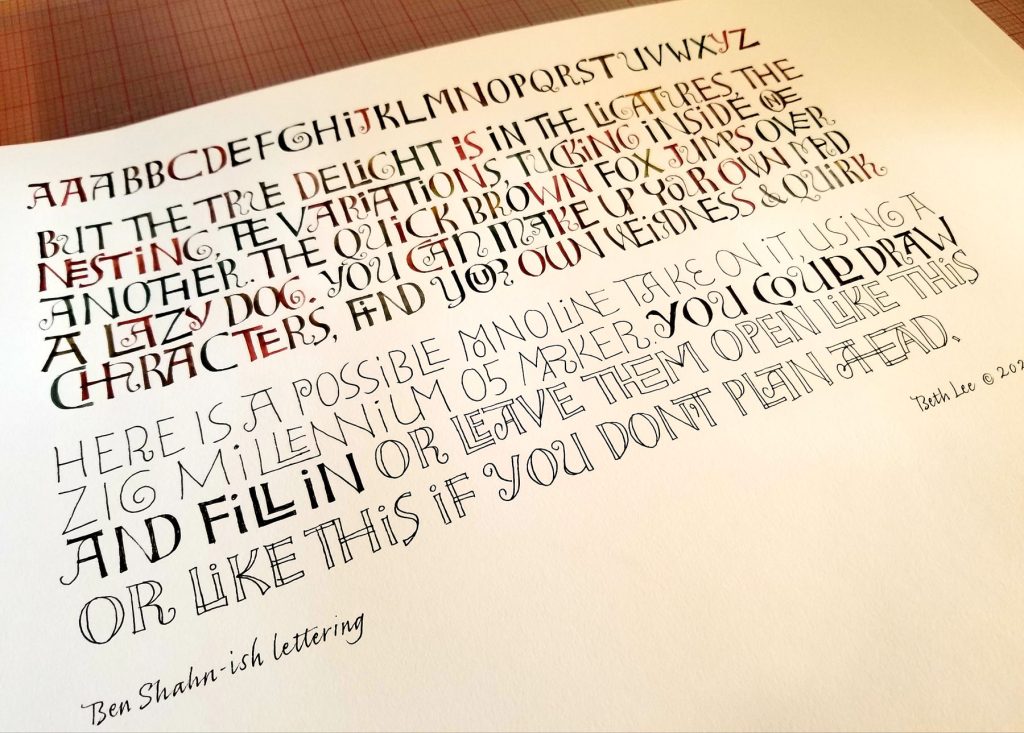 AAABBCDEFGHIJKLMNOPQRSTUVWXYZ
BUT THE TRUE DELIGHT IS IN THE LIGATURES, THE
NESTING, THE VARIATIONS, TUCKING INSIDE ONE
ANOTHER. THE QUICK BROWN FOX JUMPS OVER
A LAZY DOG. YOU CAN MAKE UP YOUR OWN MAD
CHARACTERS, FIND YOUR OWN WEIRDNESS & QUIRK
HERE IS A POSSIBLE MONOLINE TAKE ON IT USING A
ZIG MILLENNIUM 05 MARKER. YOU COULD DRAW
AND FILL IN OR LEAVE THEM OPEN LIKE THIS
OR LIKE THIS IF YOU DONT PLAN AHEAD.
Beth Lee ©
Ben Shahn-ish lettering